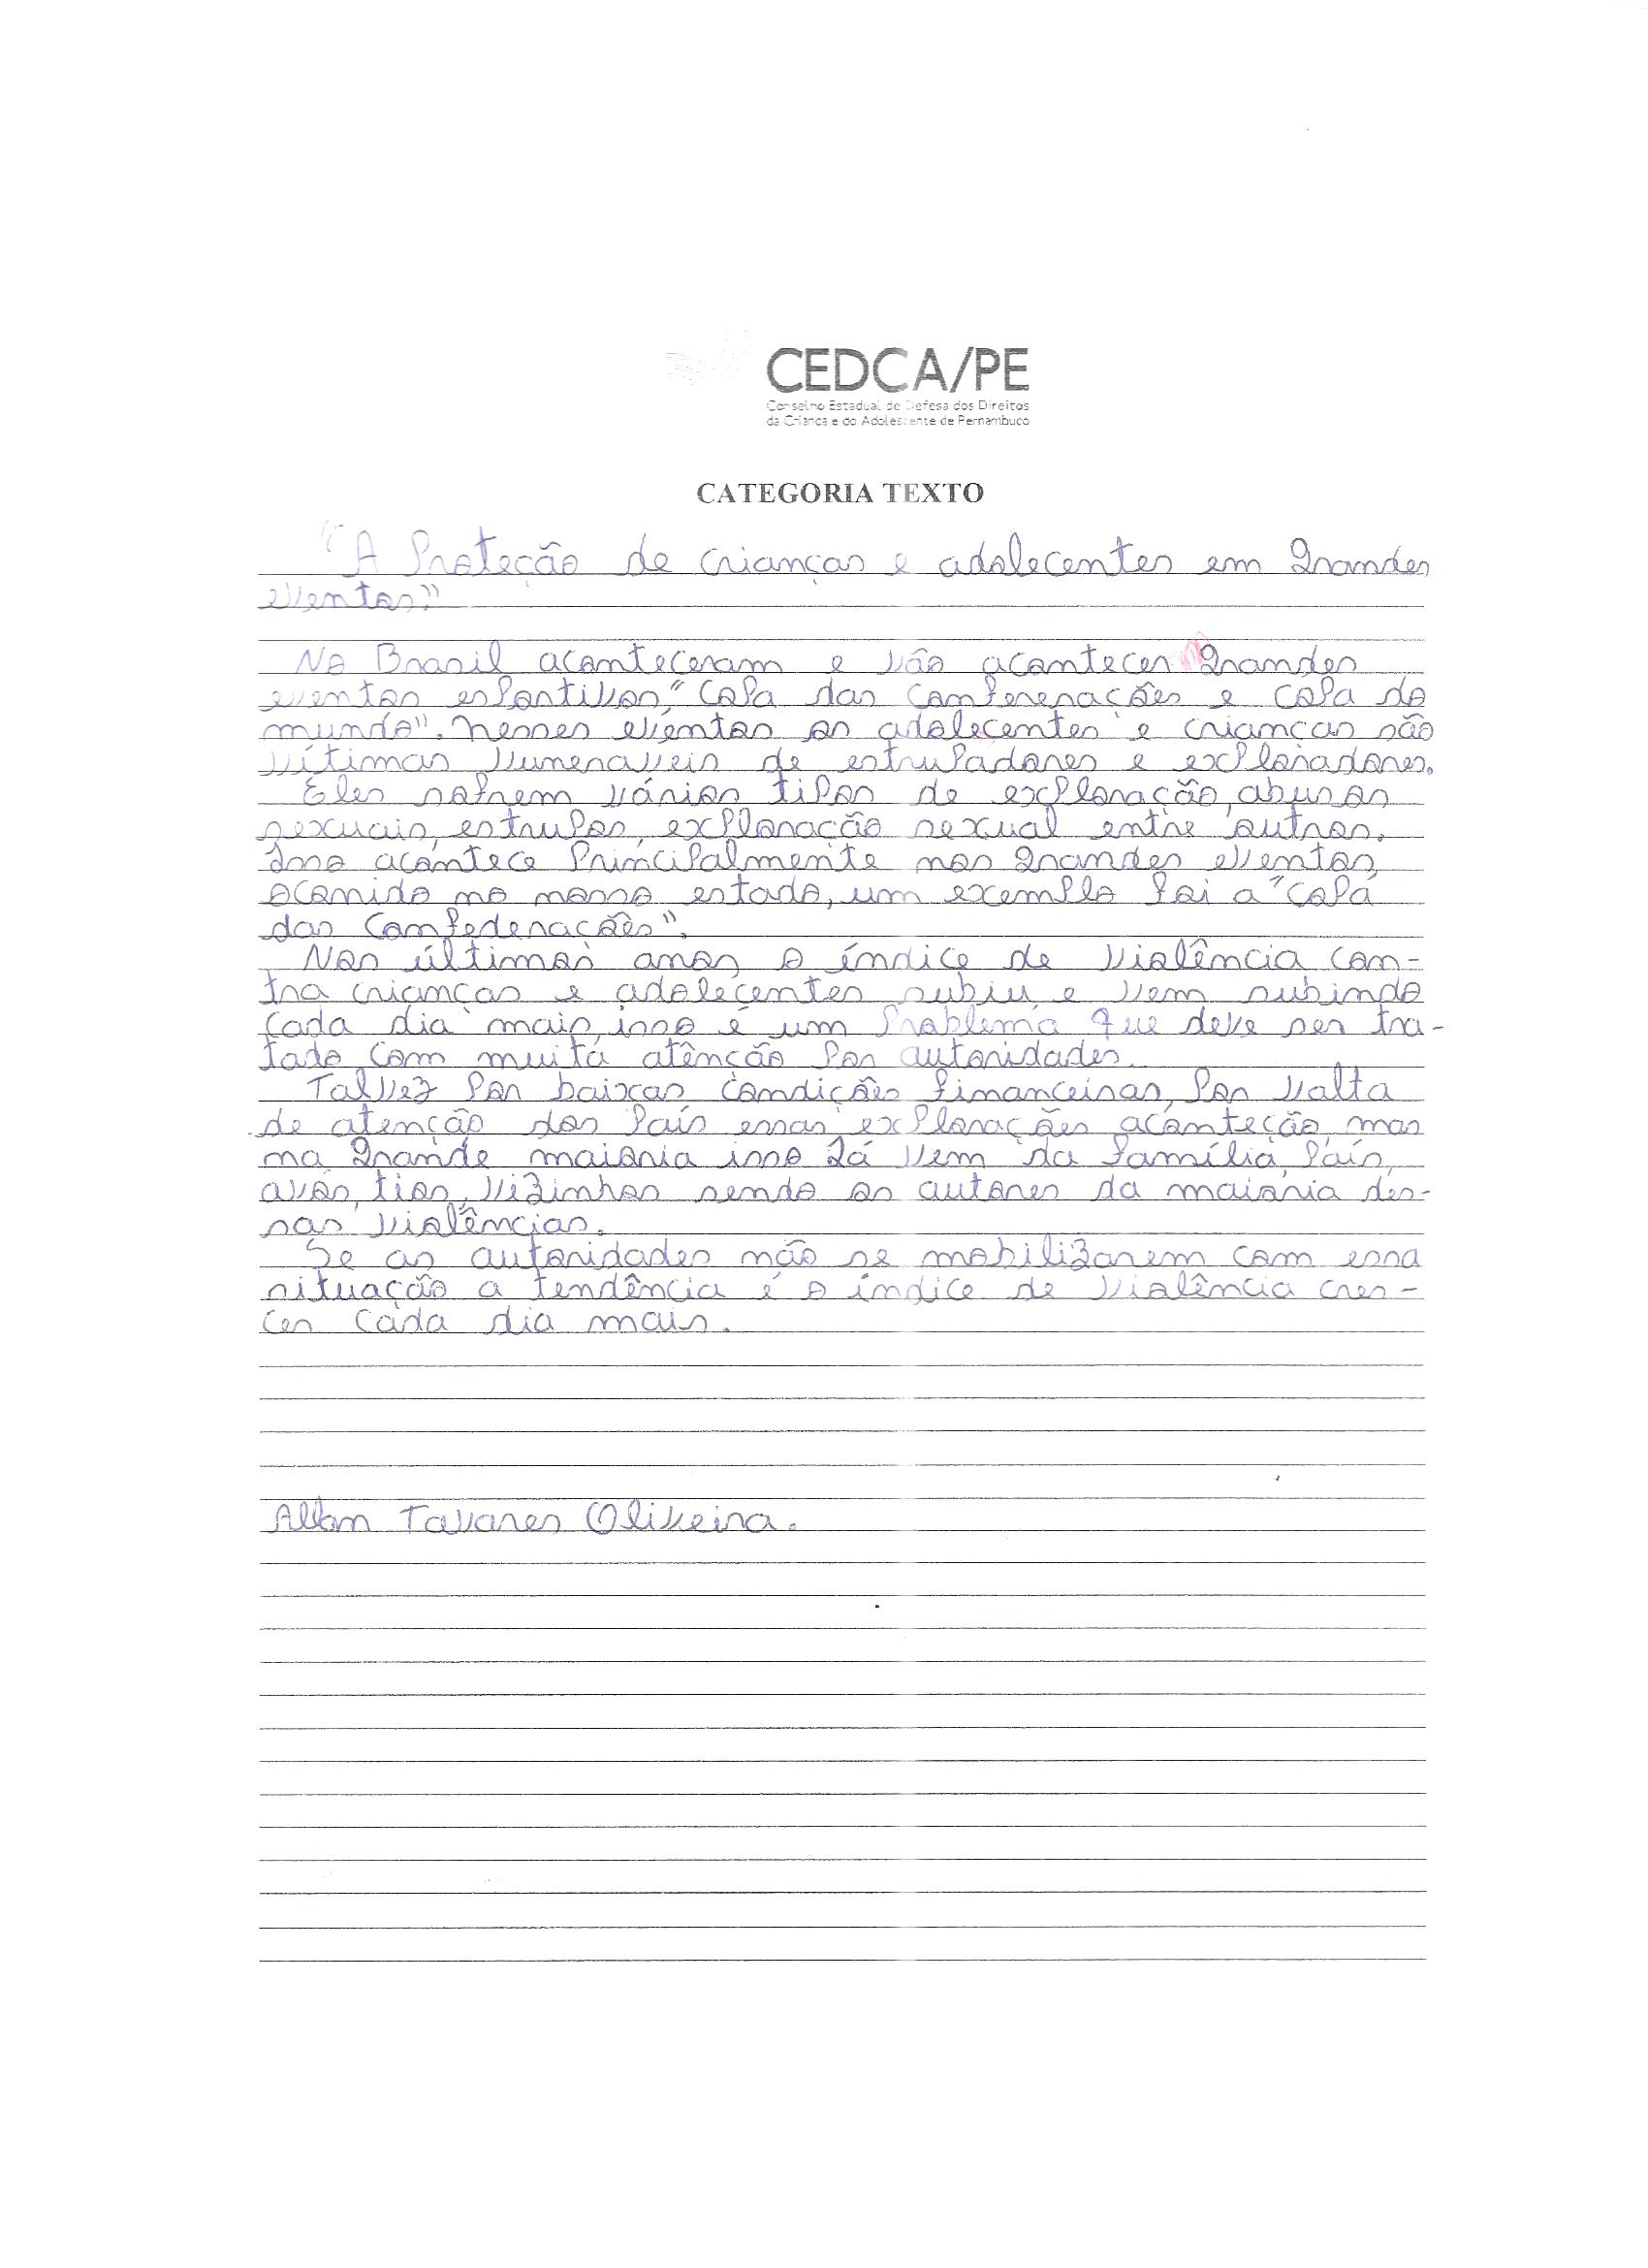 CEDCA/PE
Conselho Estadual de Defesa dos Direitos
da Criança e do Adolescente de Pernambuco
CATEGORIA TEXTO
"A Proteção de crianças e adolecentes em grandes
eventos"
No Brasil aconteceram e vão acontecer grandes
eventos esportivos," Copa das Conferenações e copa do
mundo". Nesses eventos os adolecentes e crianças são
vítimas vumeraveis de estrupadores e exploradores.
Eles sofrem vários tipos de exploração, abusos
sexuais, estrupos, exploração sexual entre outros.
Isso acontece principalmente nos grandes eventos,
ocorrido no nosso estado, um exemplo foi a "Copa
das Confederações".
Nos últimos anos, o índice de violência con-
tra crianças e adolecentes subiu e vem subindo
cada dia mais, isso é um problema que deve ser tra-
tado com muita atênção por autoridades.
Talvez por baixas condições financeiras, por valta
de atenção dos país essas explorações aconteção, mas
na grande maioria isso já vem da família, país,
avós, tios, vizinhos sendo os autores da maioria des-
sas violências.
Se as autoridades não se mobilizarem com essa
situação a tendência é o índice de violência cres-
cer cada dia mais.
Allan Tavares Oliveira.